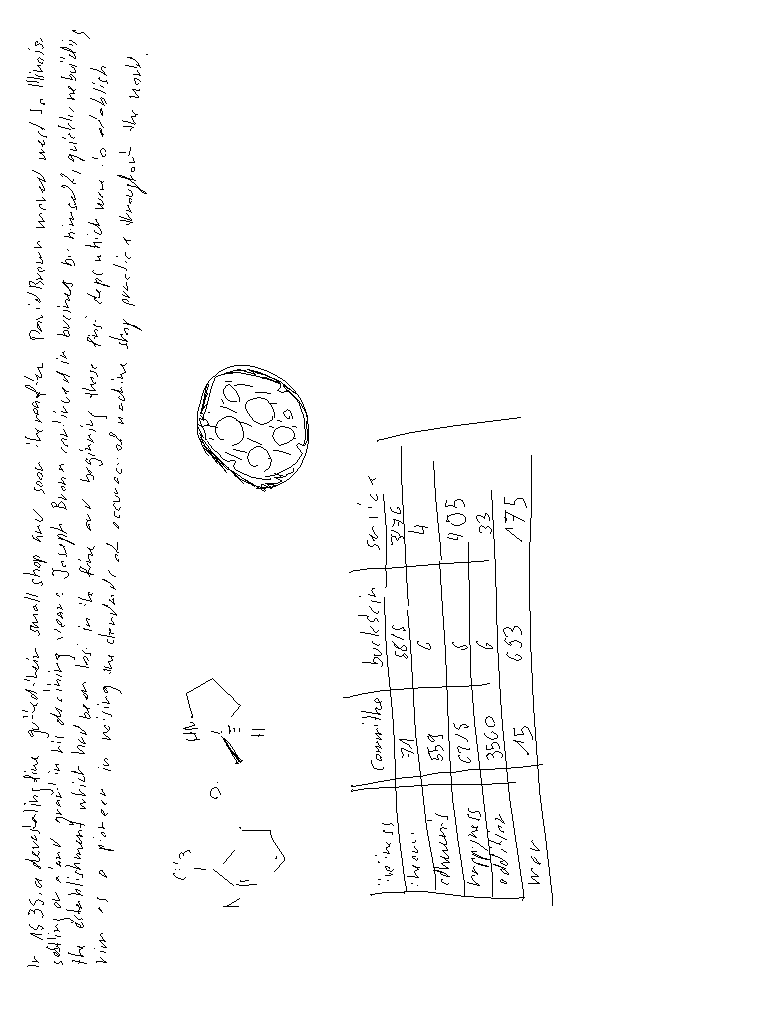 In 1835, a devastating fire gutted their small shop and soon thereafter David Brown moved west to Illinois
settling on a land grant in his declining years. Joseph Brown continued in business by himself, quickly rebuilding
the establishment which had been lost in the fire and beginning those first steps which were to establish
him as a pioneer in raising the standards of accuracy of machine shop practice throughout the world.
HN
H
N
committee buckskin service
71 5615 3176
559 6 4
happyness 6715 6 405
addition 3560 6 33
war 15 653 175